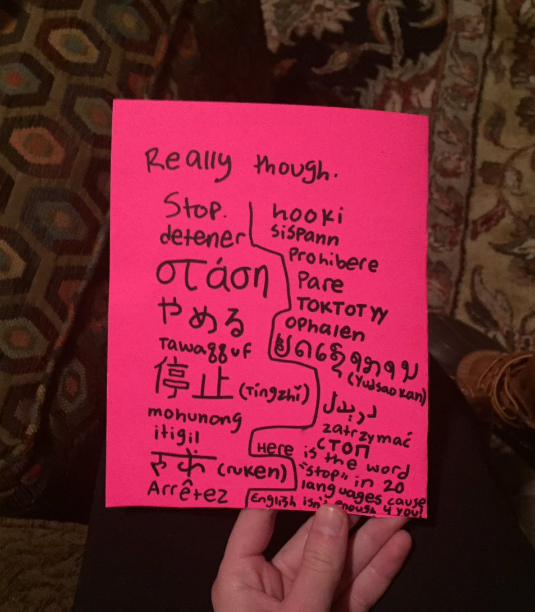 Really though.
Stop.
detener
στάση
やめる
Tawaqquf
停止 (Tingzhǐ)
mohunong
itigil
(ruken)
Arrêtez
hooki
sispann
Prohibere
Pare
ТОКТОТУУ
Ophalen
(Yudsaokan)
دریدل
zatrzymać
СТОП
Here is the word
"stop" in 20
languages cause
English isn't enough 4 you!